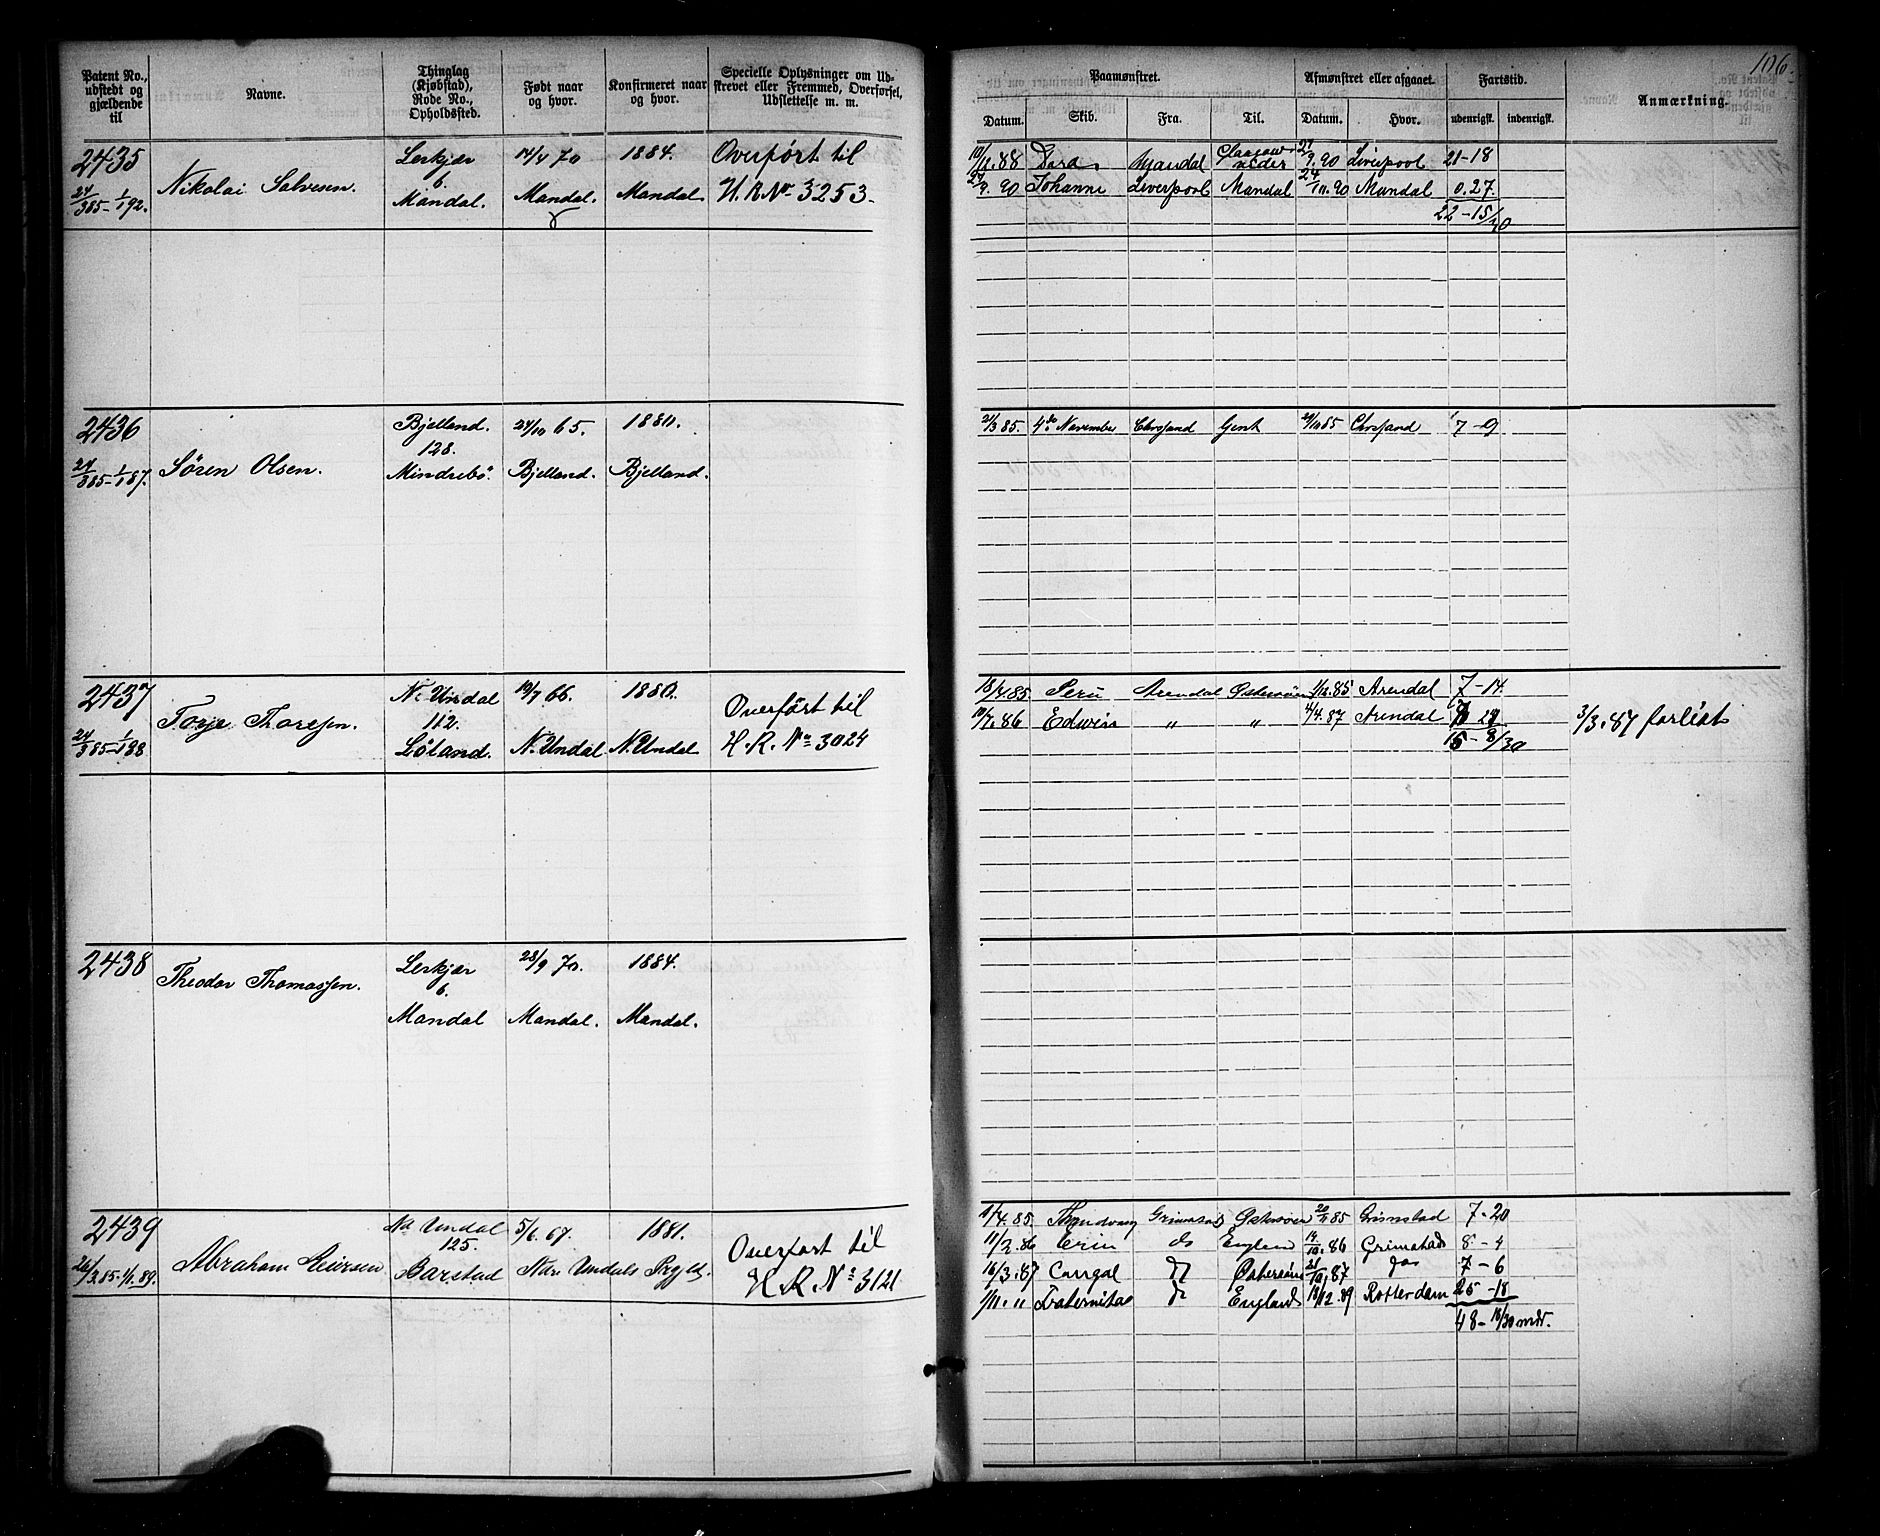 106.
Patent No., udstedt og gjældende til
Navne.
Thinglag (Kjøbstad), Rode No., Opholdssted.
Født naar og hvor.
Konfirmeret naar og hvor.
Specielle Oplysninger om Udskrevet eller Fremmed, Overførsel, Udslettelse m. m.
Paamønstret.
Afmønstret eller afgaaet.
Fartstid.
Anmærkning.
Datum. Skib. Fra. Til. Datum. Hvor. udenrigsk. indenrigsk.
2435 Lerkjær 14/4 70 1884. Overført til
Nikolai Salvesen. 6.
24/3 85 – 1/1 92. Mandal. Mandal. Mandal. H. R. No. 3253.
10/12 88 Dora Mandal 27/9. 90 Liverpool 21-18
27/9. 90 Johanne Liverpool Mandal 24/10. 90 Mandal 0.27.
22-15/30
2436 Bjelland. 24/10 65. 1880.
Søren Olsen. 128.
24/3 85 – 1/1 87. Mindrebö. Bjelland. Bjelland.
21/3 85. 4de November Chrsand Gent 29/10 85 Chrsand 7-9
2437 N. Undal 19/7 66. 1880. Overført til
Torje Thoresen. 112.
24/3 85 – 1/1 88 Löland. N. Undal N. Undal H. R. No 3024
18/4. 85. Peru Arendal Östersöen 1/12. 85 Arendal 7-14
10/7. 86 Edwin " " 4/4. 87 Arendal 3/3. 87 forlist
15-8/30
2438 Lerkjær 28/9 70. 1884.
Theodor Thomassen. 6.
Mandal Mandal. Mandal.
2439 Nd Undal 5/6. 67. 1881. Overført til
Abraham 125.
26/3. 85. 1/1. 89. Barstad Ndr. Undals H. R. No 3121
11/4. 85. Grimstad Östersöen 20/11 85 Grimstad 7-20
11/2. 86 Erin do England 14/10. 86 Grimstad 8-4
16/3. 87 do Östersöen 21/10. 87 do 7-6
1/11. " Fraternitas do England 18/12. 89 Rotterdam 25-18
48-18/30 mdr.